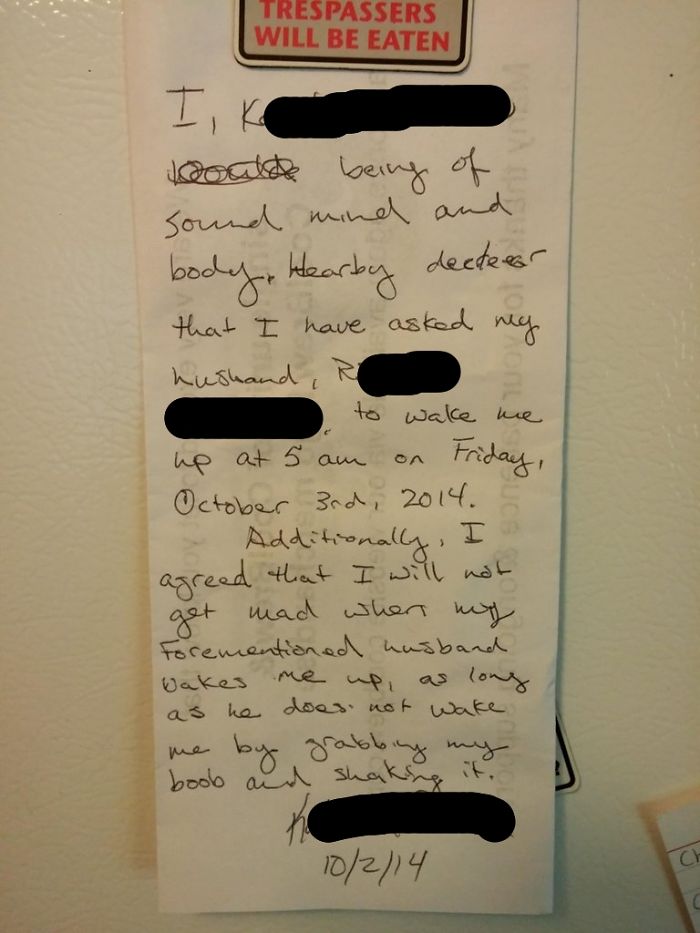 TRESPASSERS
WILL BE EATEN
I, K
being of
sound mind and
body, Hearby
that I have asked my
husband, R
, to wake me
up at 5 am on Friday,
October 3rd, 2014.
Additionally, I
agreed that I will not
get mad when my
Forementioned husband
wakes me up, as long
as he does not wake
me by grabbing my
boob and shaking it.
K
10/2/14